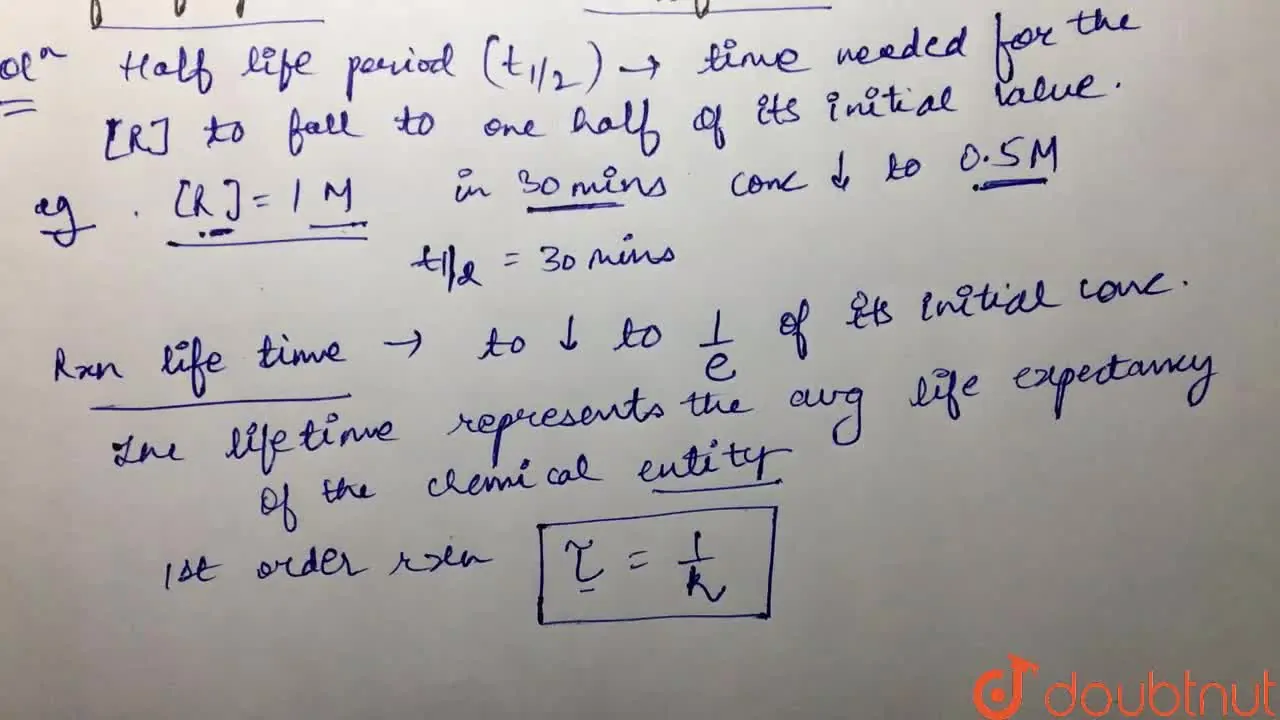 Half life period (t1/2) → time needed for the
[R] to fall to one half of its initial value.
eg . [R] = 1 M in 30 mins conc ↓ to 0.5M
t1/2 = 30 mins
Rxn life time → to ↓ to 1/e of its initial conc.
The lifetime represents the avg life expectancy
of the chemical entity
1st order rxn τ = 1/k
doubtnut